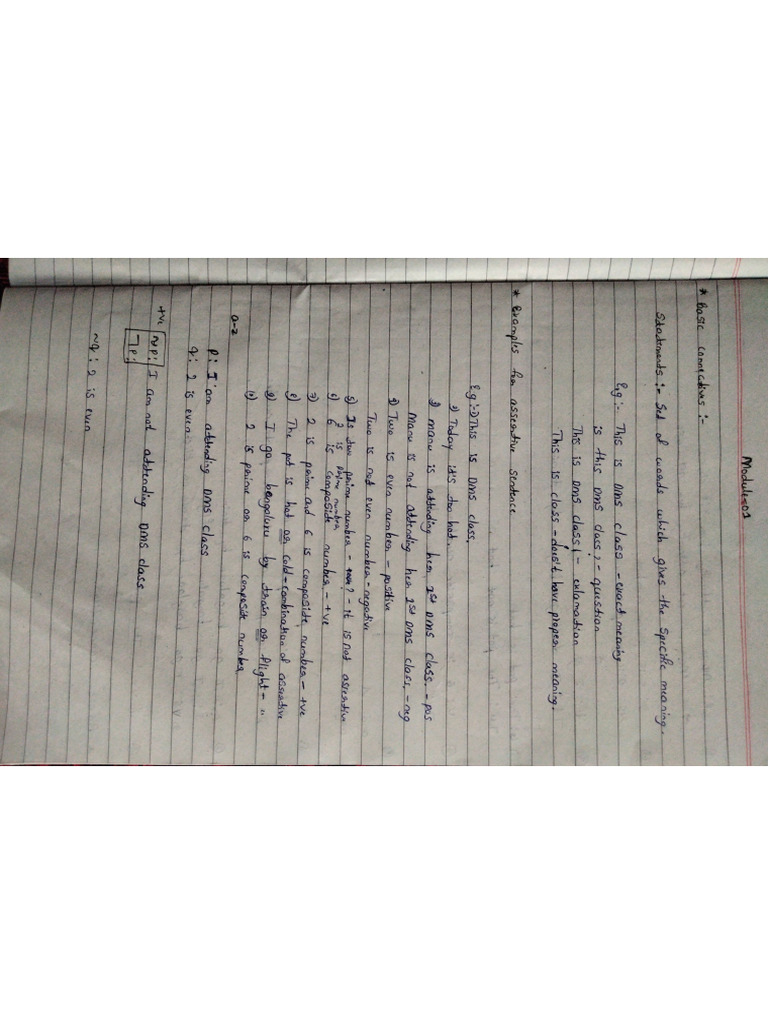 Module-01
* Basic connectives :-
Statements :- Set of words which gives the specific meaning.
Eg :- This is DMS class - exact meaning
Is this DMS class? - question
This is DMS class! - exlamation
This is class - doesn't have proper meaning.
* Examples for asserative sentence
Eg :- 1) This is DMS class.
2) Today it's too hot.
3) manu is attending her 1st DMS class. - pos
Manu is not attending her 1st DMS class. - neg
4) Two is even number - positive
Two is not even number - negative
5) Is two prime number - ? - it is not asserative
2 is prime number
6) 6 is composite number - +ve
7) 2 is prime and 6 is composite number - +ve
8) The pot is hot or cold - combination of asserative
9) I go bengaluru by train or flight - "
10) 2 is prime or 6 is composite number
a-z
p: I am attending DMS class
q: 2 is even.
+ve
~p: I am not attending DMS class
¬p:
~q: 2 is even